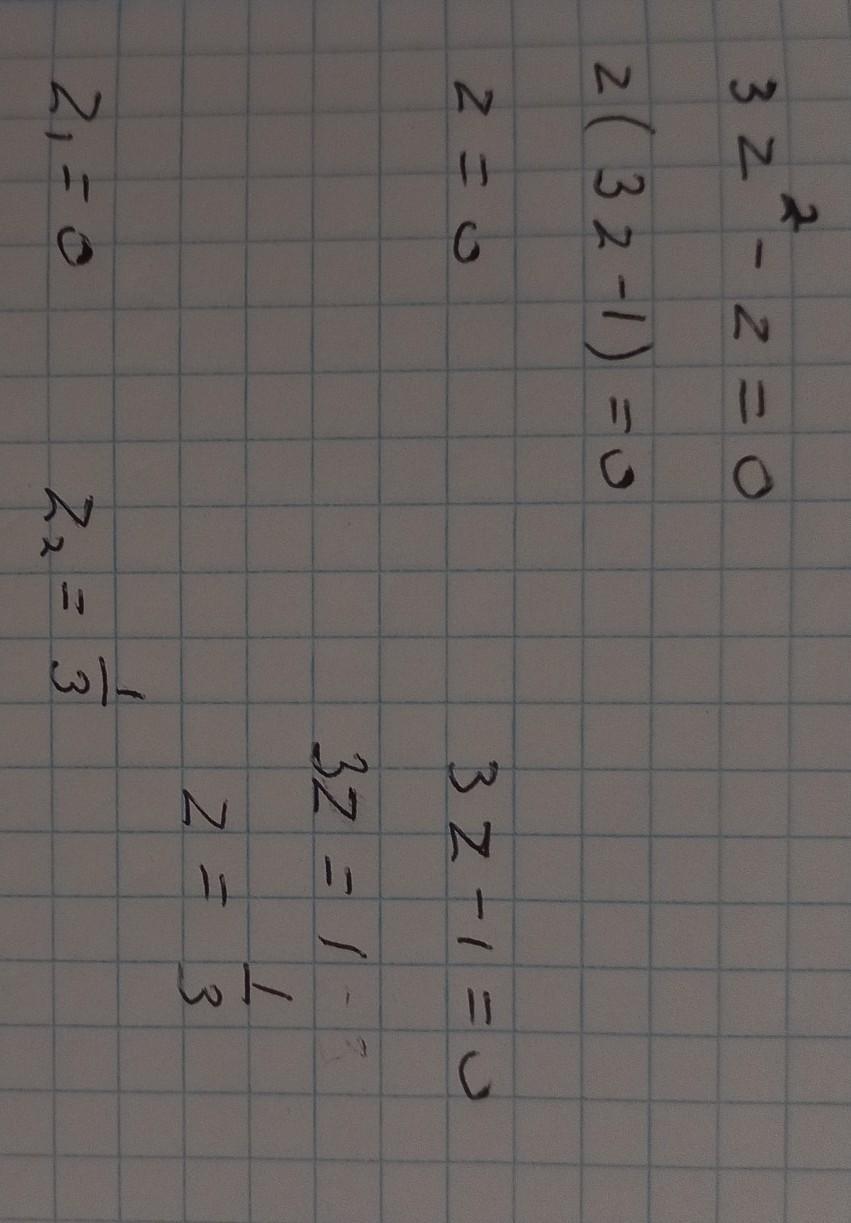 3z² - z = 0
z(3z - 1) = 0
z = 0 3z - 1 = 0
3z = 1
z = 1/3
z₁ = 0 z₂ = 1/3